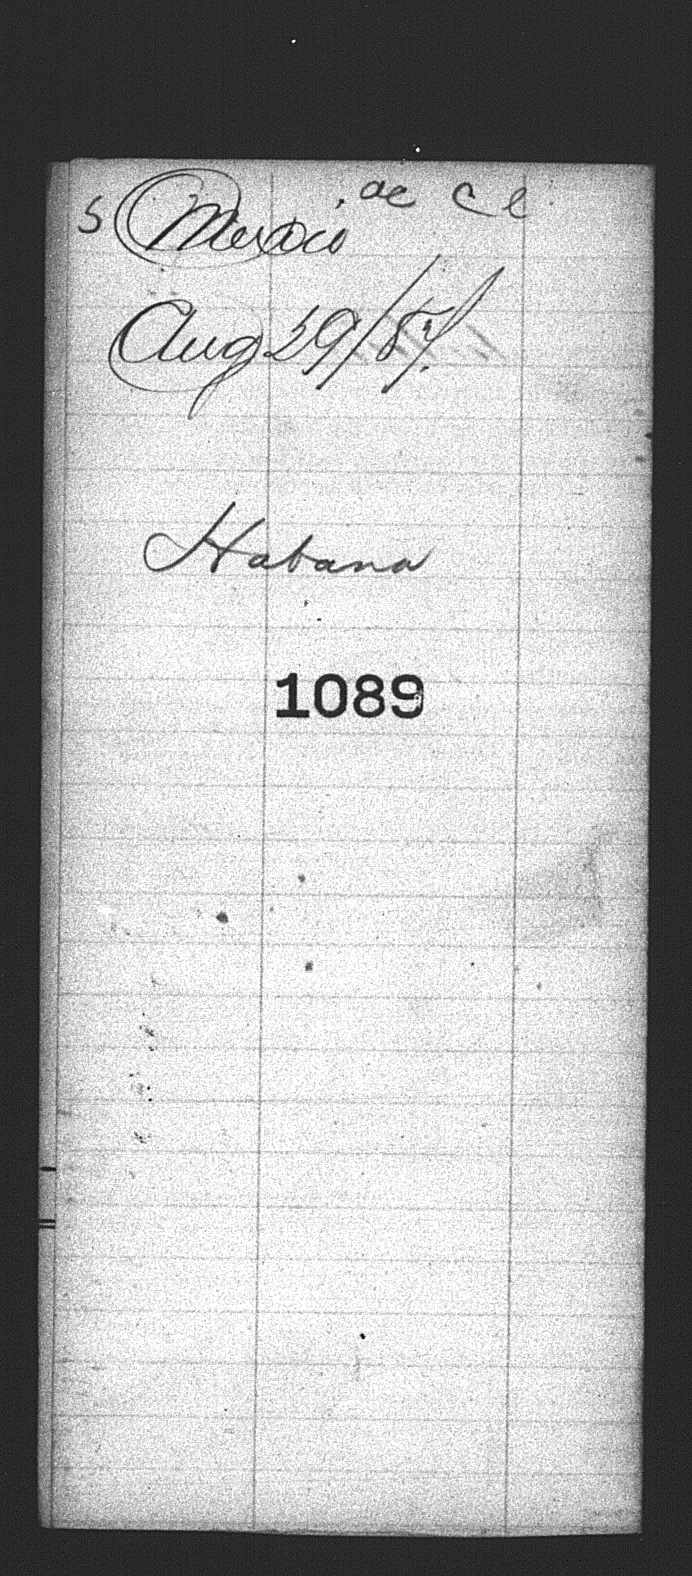 S Mexico
Aug 29/87.
Habana
1089